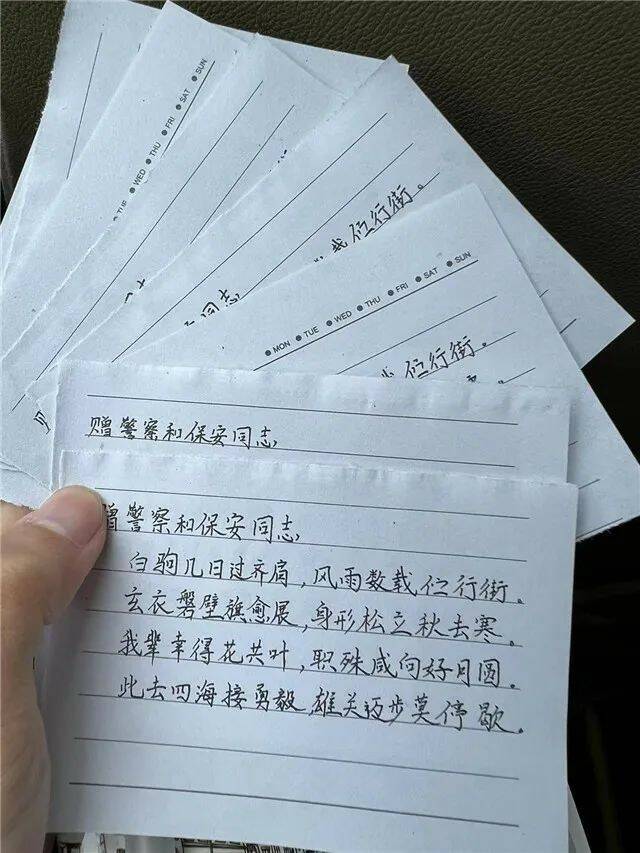 TUE WED THU FRI SAT SUN
载伫行街。
同志
MON TUE WED THU FRI SAT SUN
载伫行街。
赠警察和保安同志
赠警察和保安同志
白驹几日过齐肩，风雨数载伫行街。
玄衣磐壁旗愈展，身形松立秋去寒。
我辈幸得花共叶，职殊咸向好月圆。
此去四海接勇毅，雄关迈步莫停歇。